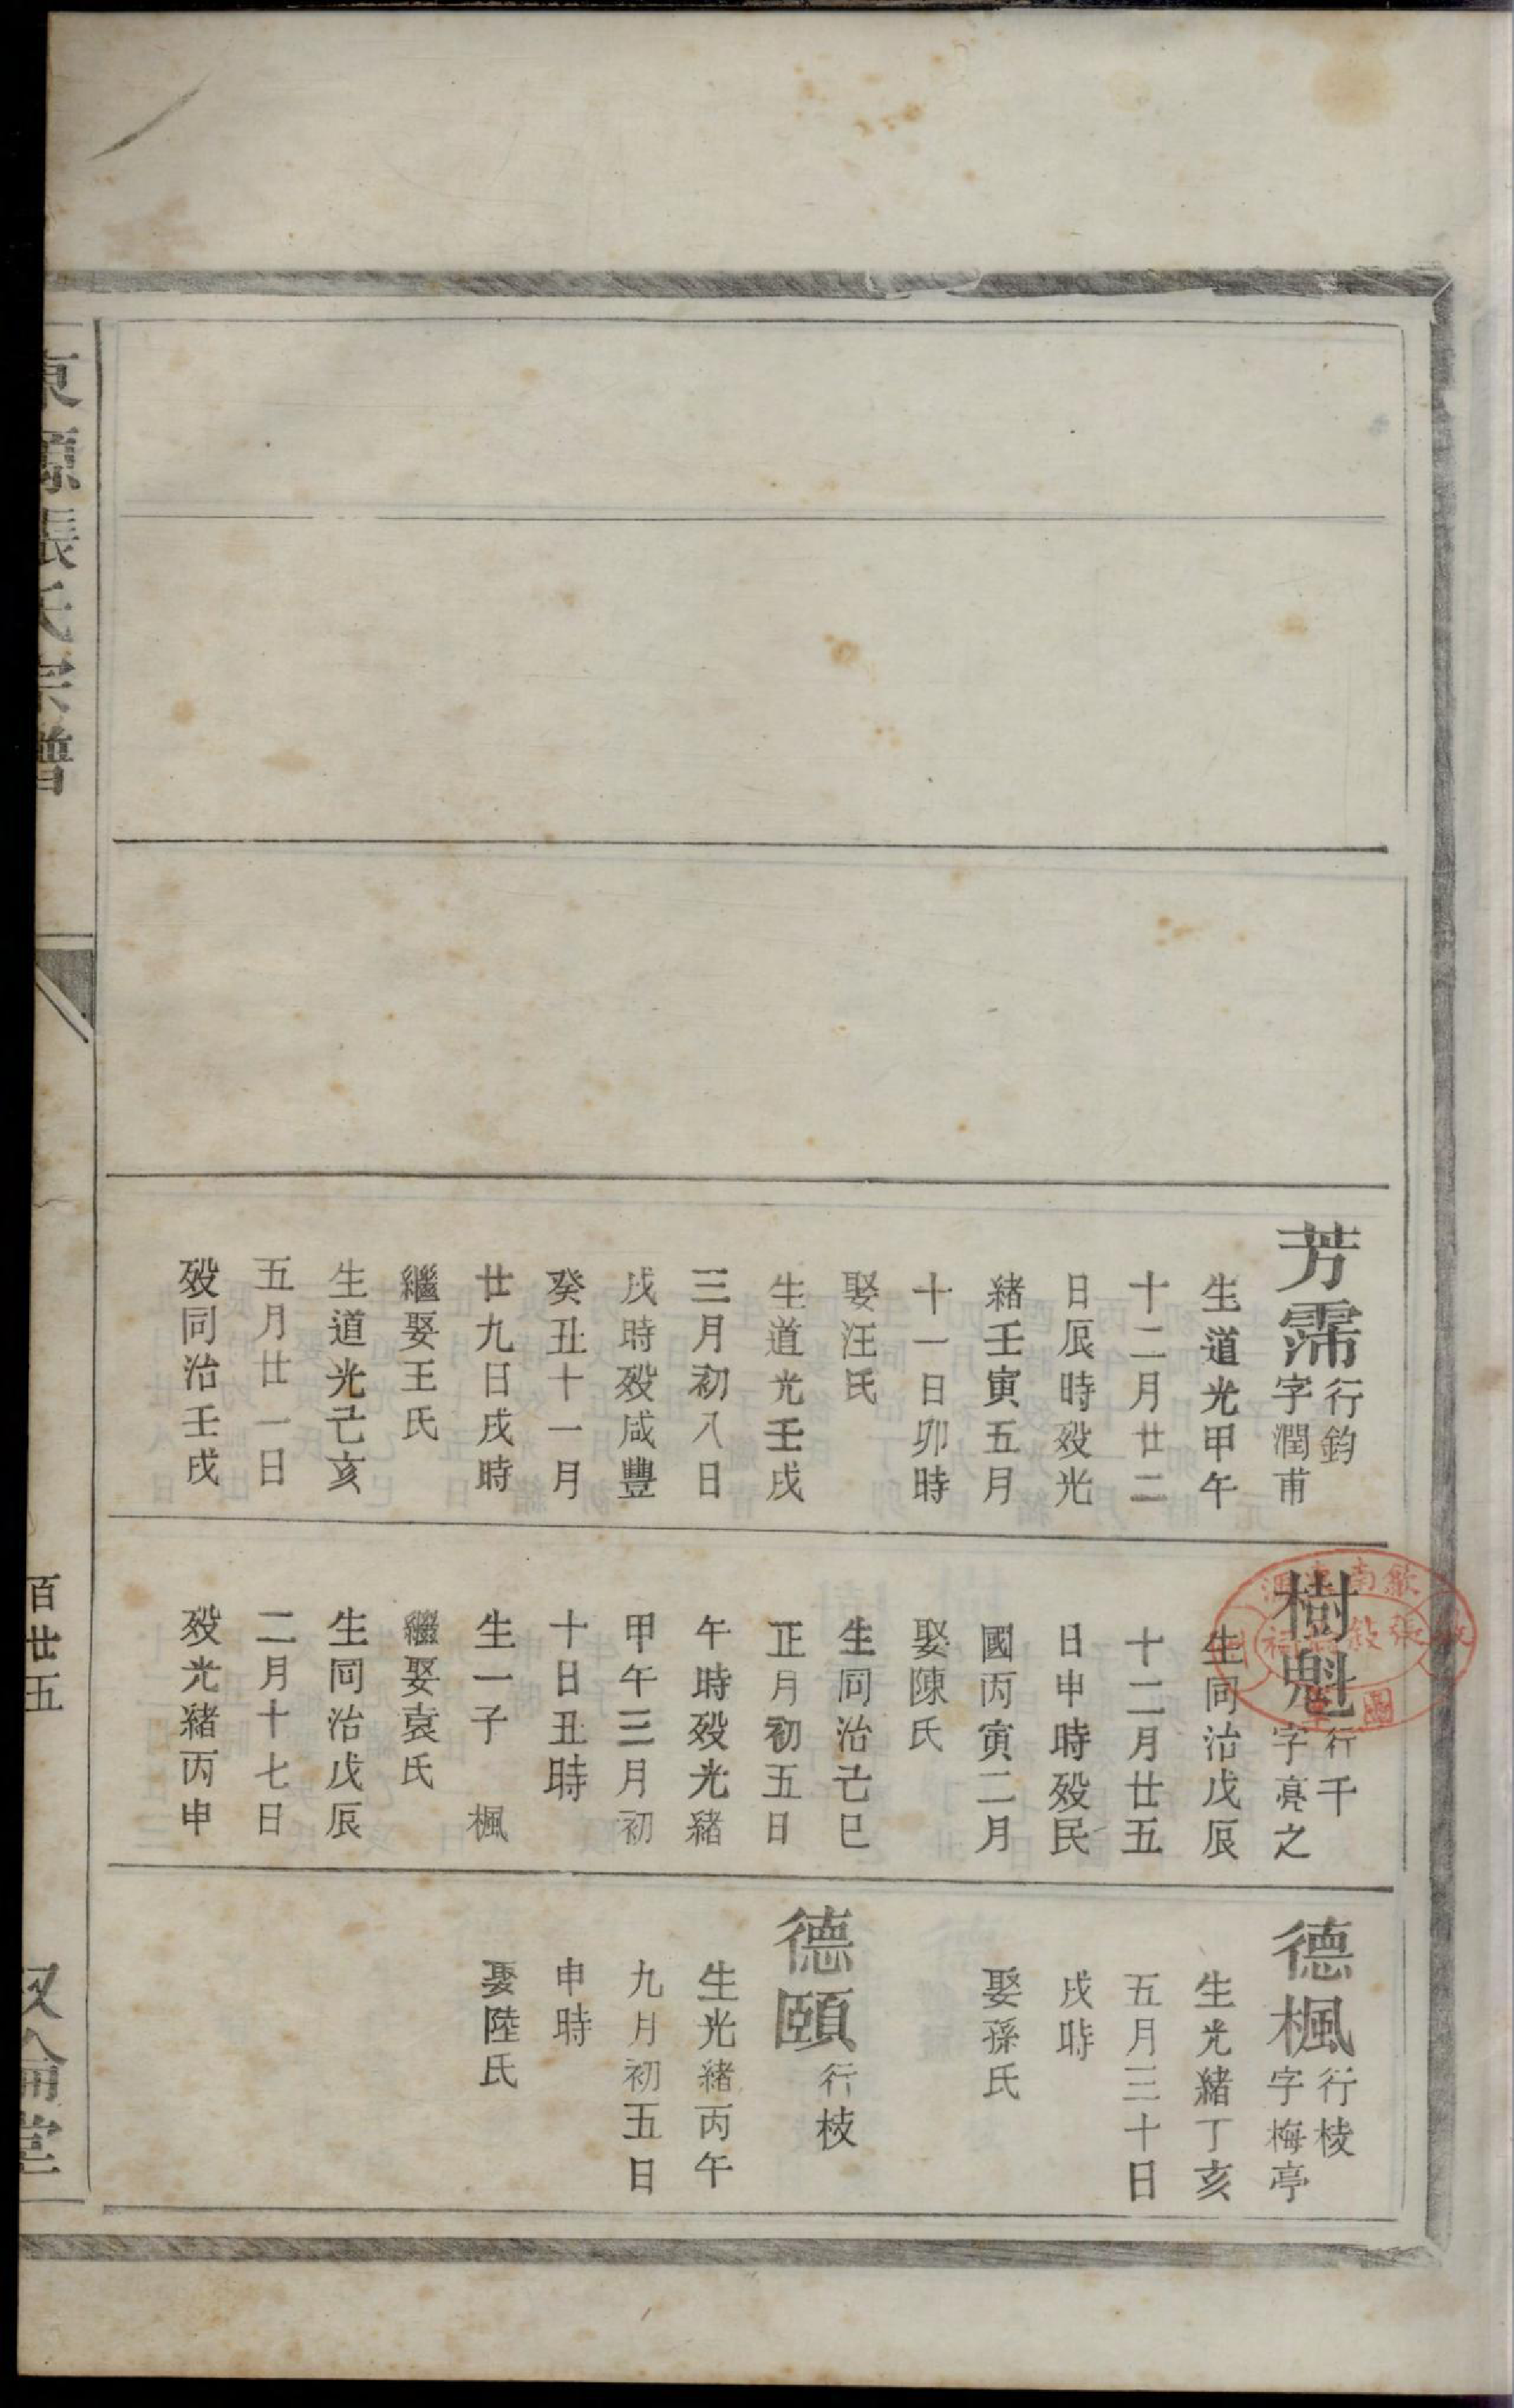 芳霈行鈞
字潤甫
生道光甲午
十二月廿二
日辰時歿光
緒壬寅五月
十一日卯時
娶汪氏
生道光壬戌
三月初八日
戌時歿咸豐
癸丑十一月
廿九日戌時
繼娶王氏
生道光己亥
五月廿一日
歿同治壬戌
樹魁行千
字亮之
生同治戊辰
十二月廿五
日申時歿民
國丙寅二月
娶陳氏
生同治己巳
正月初五日
午時歿光緒
甲午三月初
十日丑時
生一子 楓
繼娶袁氏
生同治戊辰
二月十七日
歿光緒丙申
德楓行棱
字梅亭
生光緒丁亥
五月三十日
戌時
娶孫氏
德頤行枝
生光緒丙午
九月初五日
申時
娶陸氏
東源張氏宗譜
百廿五
敘倫堂